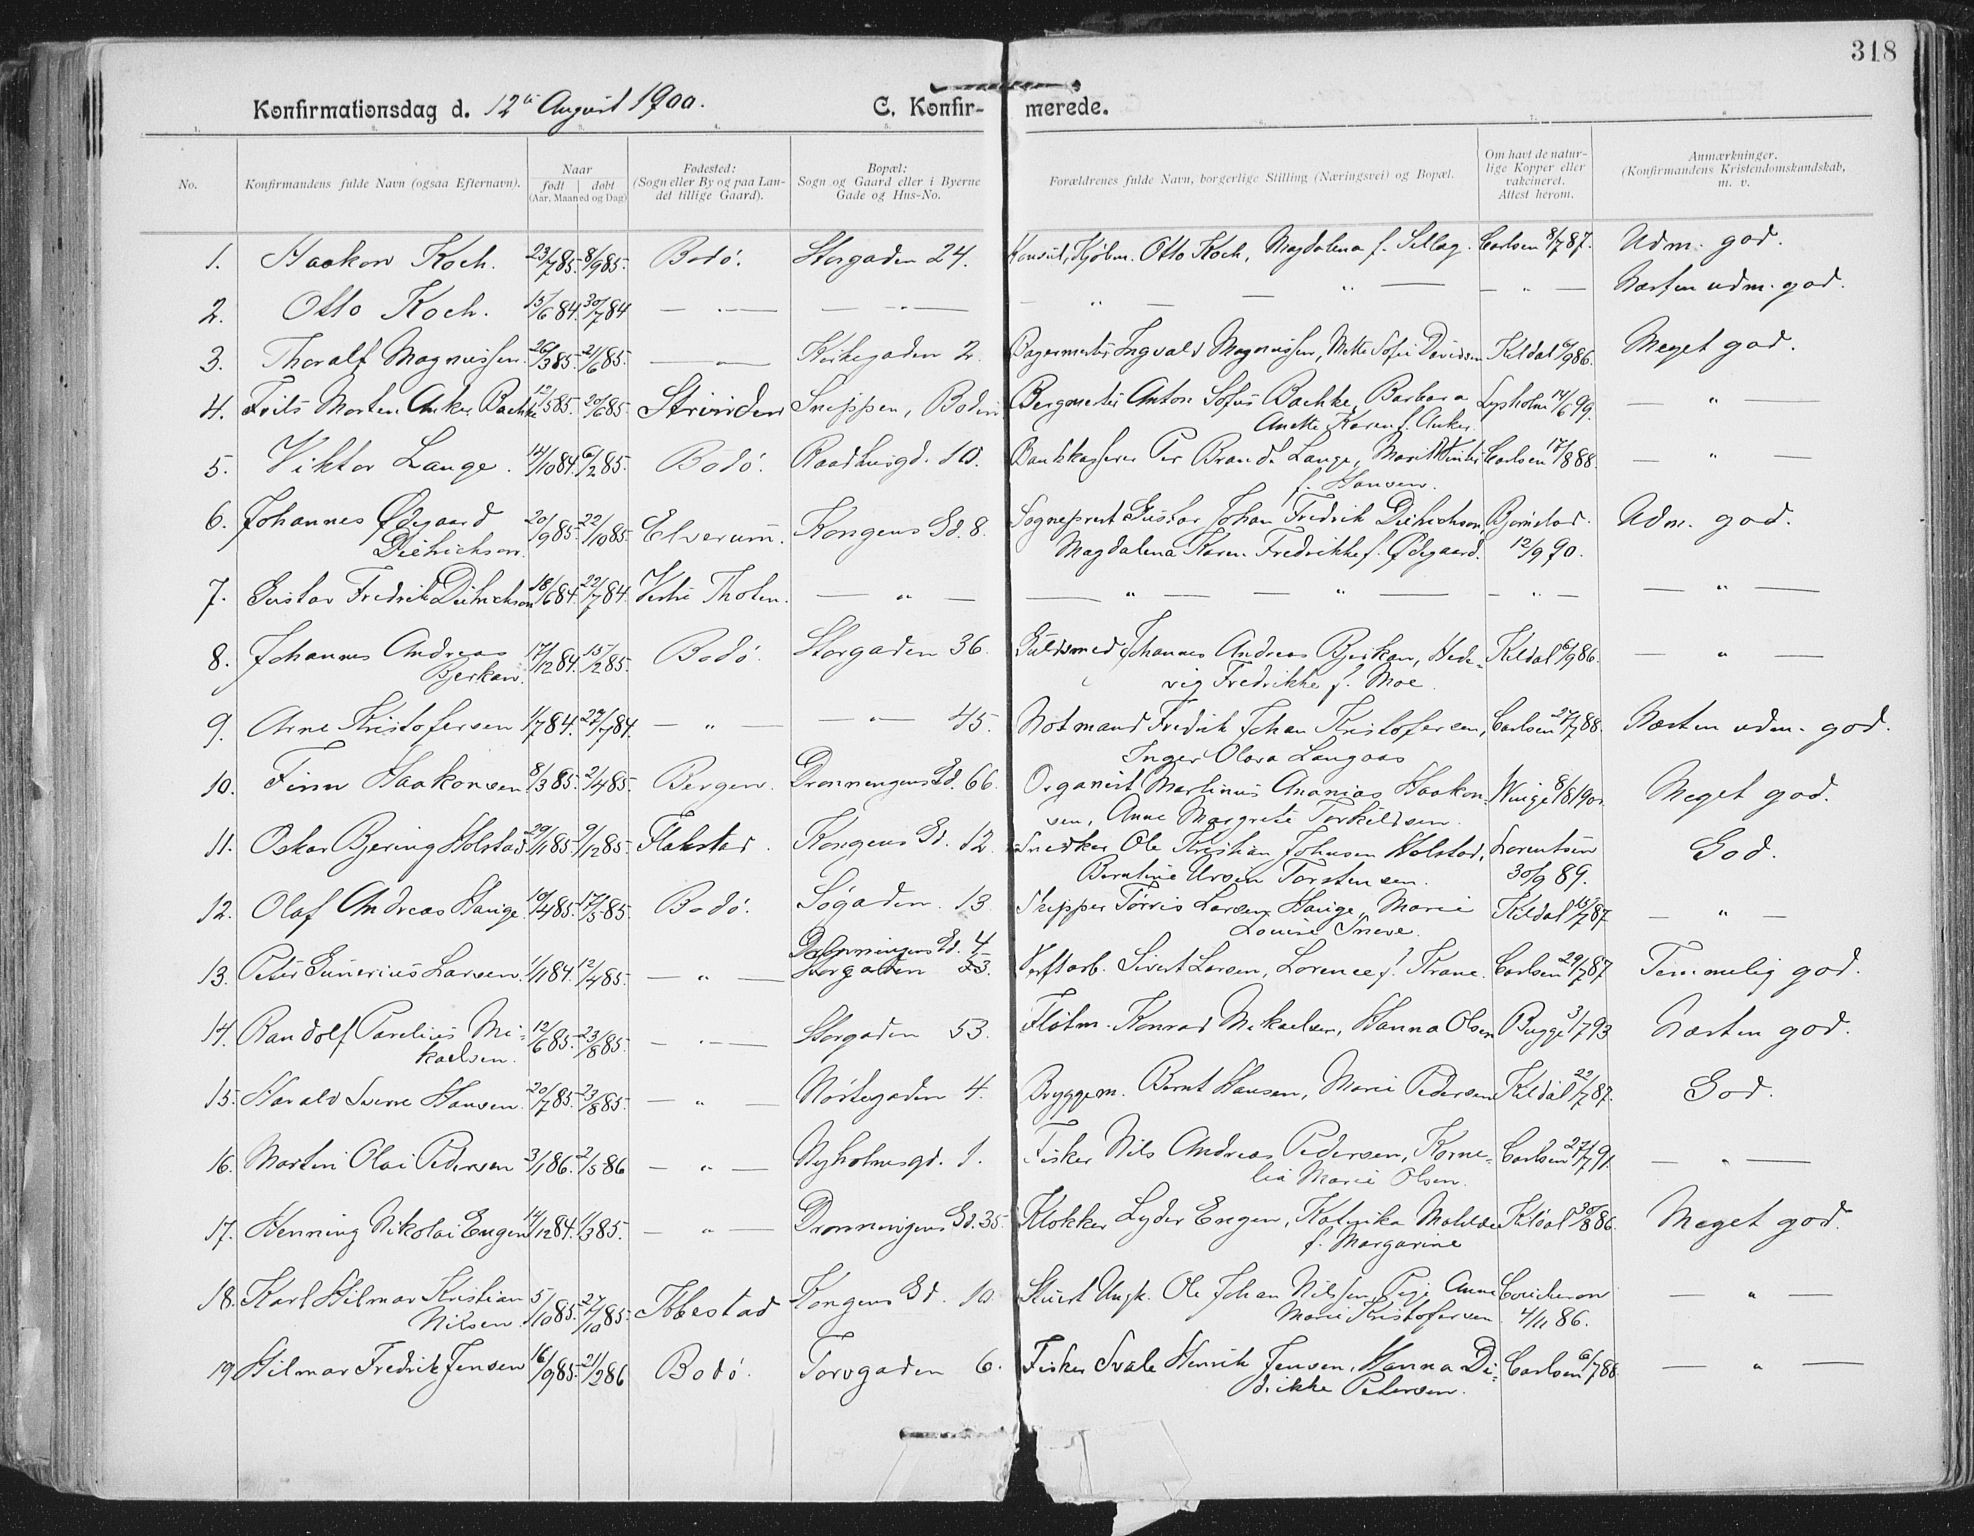 318
Konfirmationsdag d. 12te August 1900. C. Konfir- merede.
1. 2. 3. 4. 5. 6. 7. 8.
No. Konfirmandens fulde Navn (ogsaa Efternavn). Naar født døbt (Aar, Maaned og Dag) Fødested: (Sogn eller By og paa Lan- det tillige Gaard). Bopæl: Sogn og Gaard eller i Byerne Gade og Hus-No. Forældrenes fulde Navn, borgerlige Stilling (Næringsvei) og Bopæl. Om havt de natur- lige Kopper eller vakcineret. Attest herom. Anmærkninger. (Konfirmandens Kristendomskundskab, m. v.
1. Haakon Koch. 23/7 85. 8/9 85. Bodø. Storgaden 24. Konsul, Kjøbm. Otto Koch, Magdalena f. Carlsen 8/7 87. Udm. god.
2. Otto Koch. 15/6 84. 30/7 84 — " — — " — — " — — " — — " — Næsten udm. god.
3. Thoralf Magnussen. 26/3 85. 21/6 85. — " — Kirkegaden 2. Bagermester Ingvald Magnussen, Mette Sofie Davidsen Kildal 6/9 86. Meget god.
4. Frits Morten Anker Bachke 12/5 85. 20/6 85. Strinden Sneppen, Bodin Bergmester Anton Sofus Bachke, Barbara Lysholm 14/6 99. — " —
Anette Karen f. Anker.
5. Viktor Lange. 14/10 84. 6/2 85. Bodø. Raadhusgd. 10. Bankkasserer Per Brandt Lange, Marit Carlsen 17/8 88. — " —
f. Hansen.
6. Johannes Ødegaard 20/9 85. 22/10 85. Elverum. Kongens Gd. 8. Sogneprest Gustav Johan Fredrik Dietrichson, Bjørnstad. Udm. god.
Dietrichson. Magdalena Karen Fredrikke f. Ødegaard. 12/9 90.
7. Gustav Fredrik Dietrichson 18/6 84. 22/7 84. Vestre Thoten. — " — — " — — " — — " — — " —
8. Johannes Andreas 17/12 84. 15/2 85. Bodø. Storgaden 36. Guldsmed Johannes Andreas Bjerkan, Hede- Kildal 6/9 86. — " —
Bjerkan. vig Fredrikke f. Moe.
9. Arne Kristofersen 1/7 84. 27/7 84. — " — — " — 45. Notmand Fredrik Johan Kristofersen, Carlsen 27/7 88. Næsten udm. god.
Inger Olava Langaas
10. Finn Haakonsen 8/3 85. 2/4 85. Bergen. Dronningens Gd. 66. Organist Martinus Ananias Haakon- Winge 8/8 1900. Meget god.
sen, Anne Margrete Torkildsen.
11. Oskar Bjering Holstad 29/1 85. 9/12 85. Flakstad. Kongens Gd. 12. Snedker Ole Kristian Johnsen Holstad, Lorentsen God.
Berntine Ursen Torstensen. 30/9 89.
12. Olaf Andreas Hauge 10/4 85. 17/5 85. Bodø. Søgaden 13. Skipper Tørris Larsen Hauge, Marie Kildal 15/7 87 — " —
Louise Sneve.
Dronningens Gd. 4.
13. Peter Gunerius Larsen. 1/11 84. 12/4 85. — " — Storgaden 53. Verftarb. Sivert Larsen, Lorence f. Krane. Carlsen 29/7 87 Temmelig god.
14. Randolf Parelius Mi- 12/6 85. 23/8 85. — " — Storgaden 53. Fløtm. Konrad Mikaelsen, Hanna Olsen Bugge 3/7 93 Næsten god.
kaelsen.
15. Harald Sverre Hansen. 20/7 85. 23/8 85. — " — Nørtegaden 4. Bryggem. Bernt Hansen, Marie Pedersen Kildal 22/7 87. God.
16. Martin Olai Pedersen 3/1 86. 2/5 86 — " — Nyholmsgd. 1. Fisker Nils Andreas Pedersen, Korne- Carlsen 27/7 91. — " —
lia Marie Olsen.
17. Henning Nikolai Engen 14/12 84. 1/3 85. — " — Dronningens Gd. 35. Klokker Lyder Engen, Katrika Matilde Kildal 30/8 86. Meget god.
f. Margarine
18. Karl Hilmar Kristian 5/10 85. 27/10 85. Ibbestad Kongens Gd. 10. Ungk. Ole Johan Nilssen, Pige Anne — " —
Nilsen. Marie Kristofersen 4/11 86.
19. Hilmar Fredrik Jensen 16/9 85. 21/2 86 Bodø. Torvgaden 6. Fisker Svale Henrik Jensen, Hanna Di- Carlsen 6/7 88. — " —
drikke Petersen.